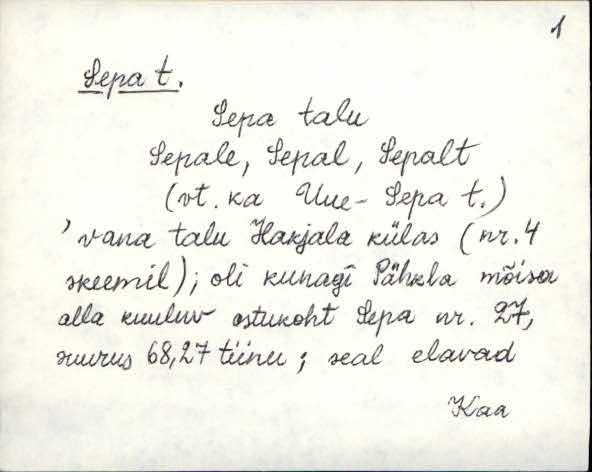 1
Sepa t.
Sepa talu
Sepale, Sepal, Sepalt
(vt. ka Uue-Sepa t.)
'vana talu Hakjala külas (nr. 4
skeemil); oli kunagi Pähkla mõisa
alla kuuluv ostukoht Sepa nr. 27,
suurus 68,27 tiinu; seal elavad
Kaa